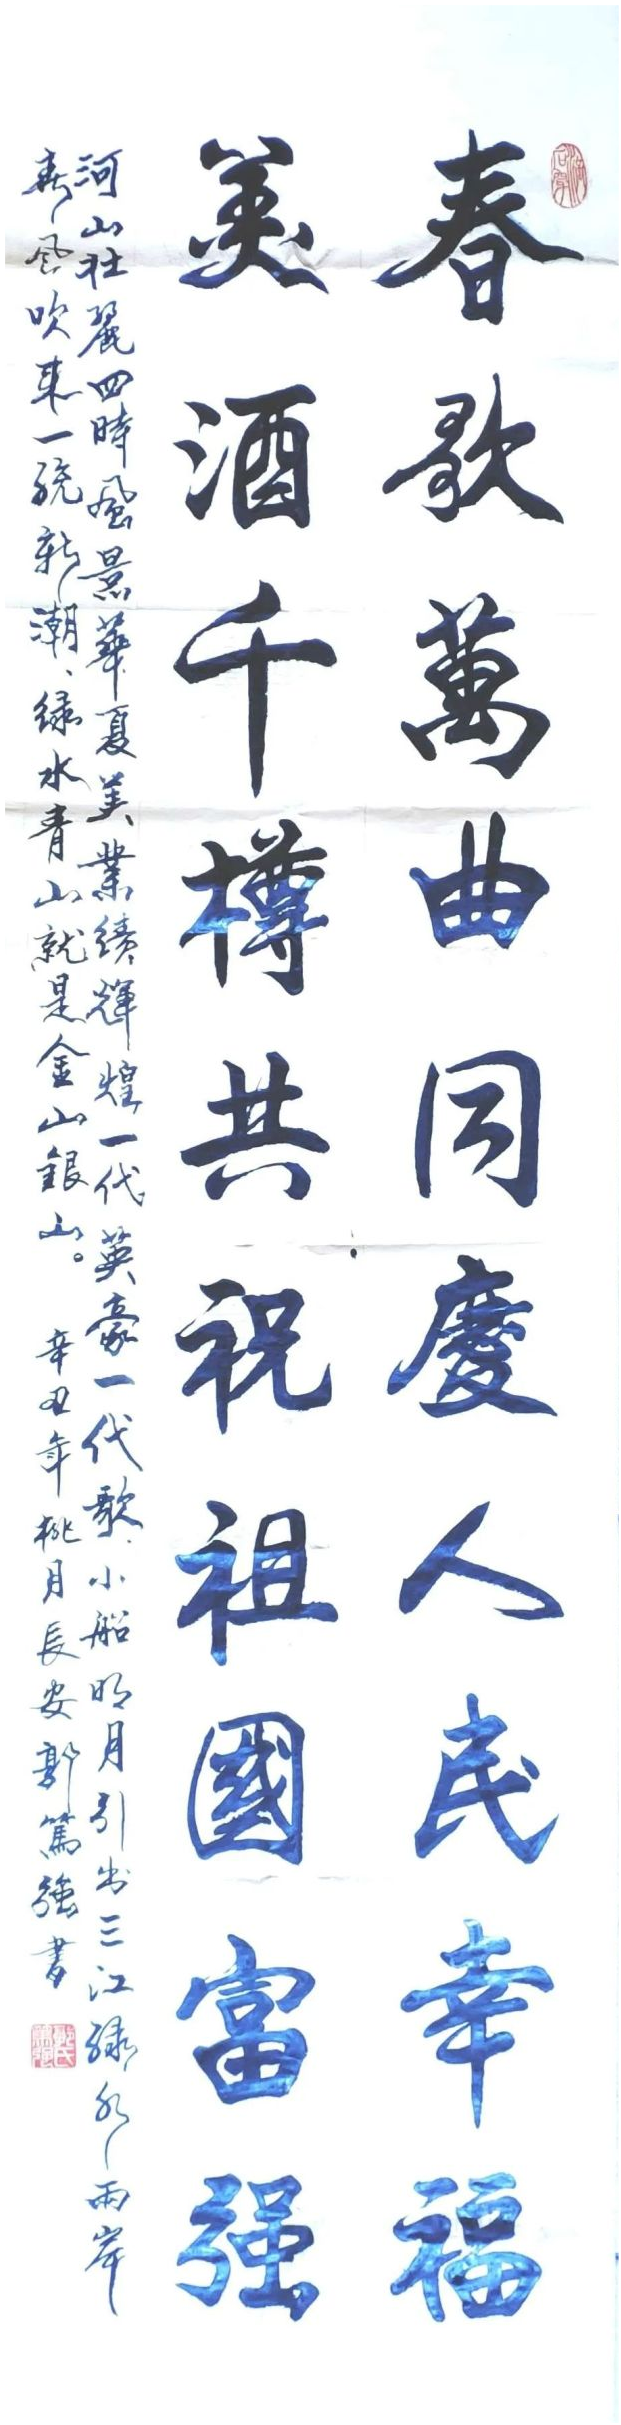 春歌萬曲同慶人民幸福
美酒千樽共祝祖國富强
河山壯麗四時風景華夏美業績輝煌一代英豪一代歌、小船明月引出三江綠水兩岸
春風吹來一統新潮、綠水青山就是金山銀山。 辛丑年桃月長安郭篤強書